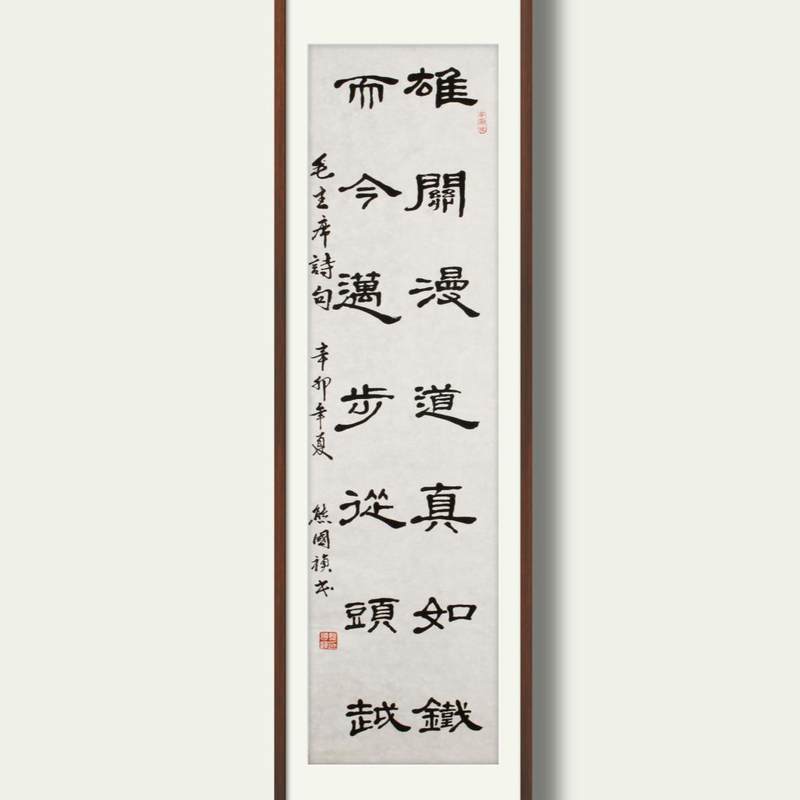 雄關漫道真如鐵
而今邁步從頭越
毛主席詩句 辛卯年夏 熊國禎书